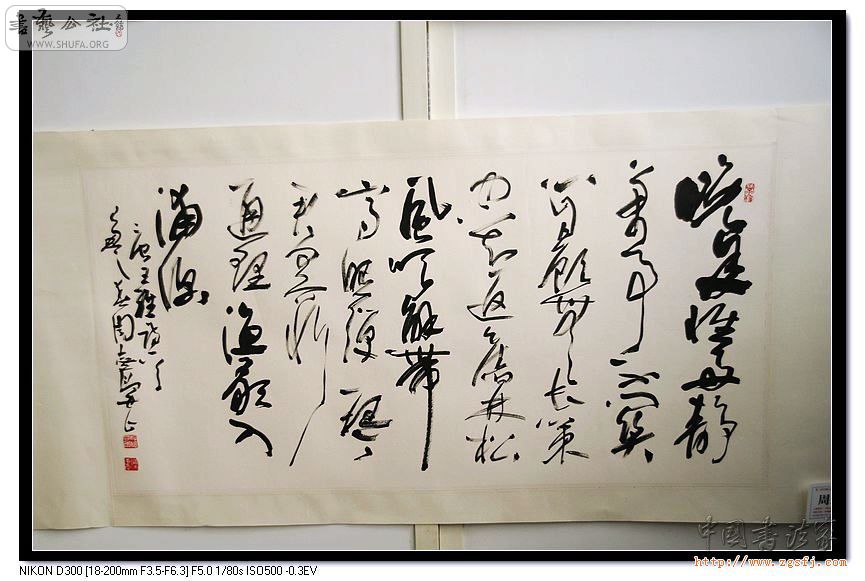 書藝公社
WWW.SHUFA.ORG
晚年惟好靜
萬事不關心
自顧無長策
空知返舊林松
風吹解帶
山月照彈琴
君問窮
通理漁歌入
浦深
唐王維詩一首
周
中国书法家
http://www.zgsfj.com
NIKON D300 [18-200mm F3.5-F6.3] F5.0 1/80s ISO500 -0.3EV